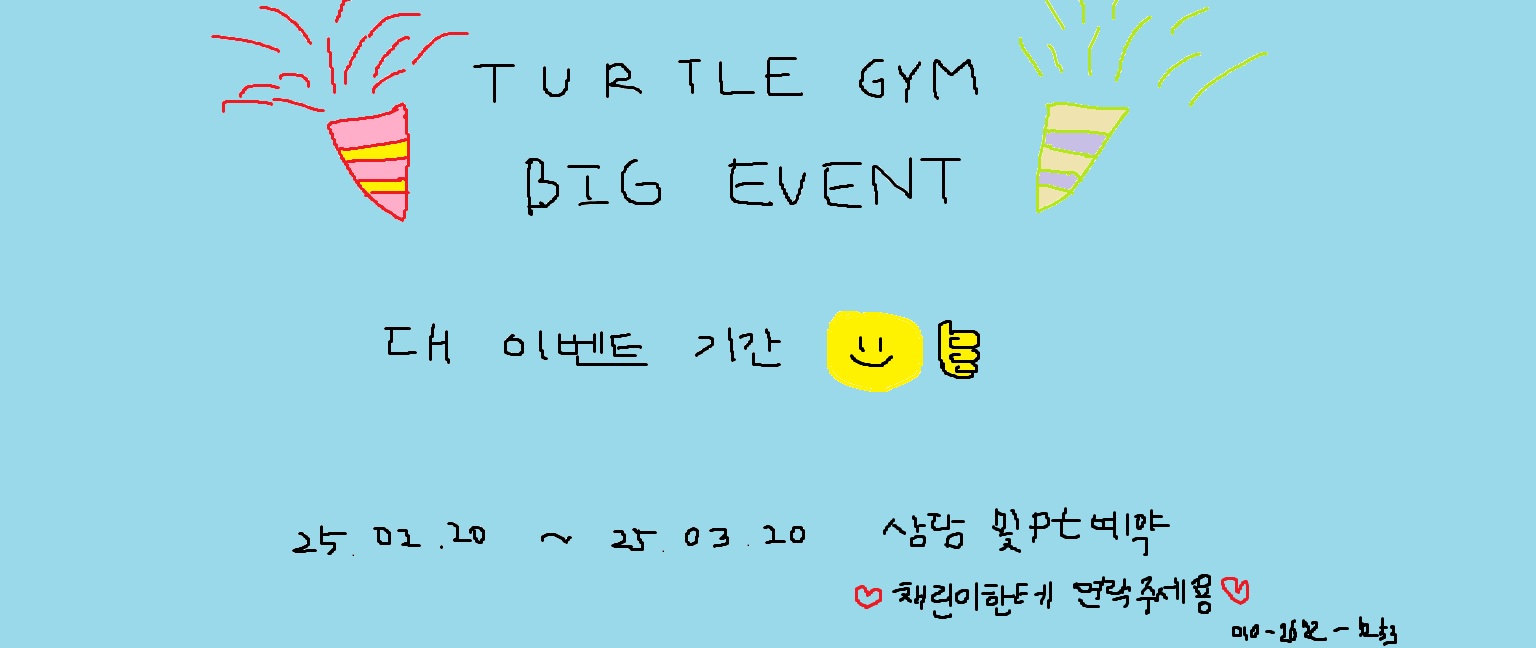 TURTLE GYM
BIG EVENT
대 이벤트 기간
25.02.20 ~ 25.03.20
상담 및 pt 예약
채린이한테 연락주세용